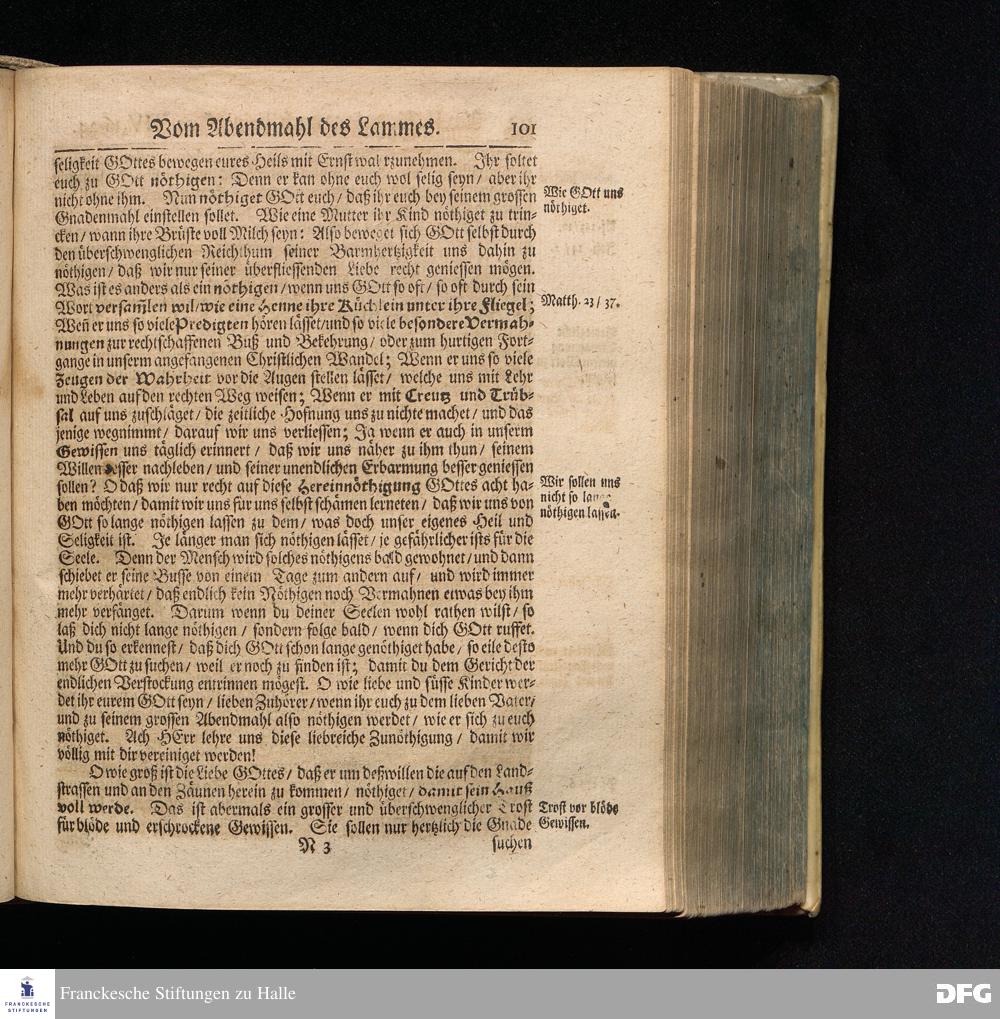 Vom Abendmahl des Lammes. 101
seligkeit GOttes bewegen eures Heils mit Ernst warzunehmen. Ihr soltet
euch zu GOtt nöthigen: Denn er kan ohne euch wol selig seyn/ aber ihr
nicht ohne ihm. Nun nöthiget GOtt euch/ daß ihr euch bey seinem grossen
Gnadenmahl einstellen sollet. Wie eine Mutter ihr Kind nöthiget zu trin-
cken/ wann ihre Brüste voll Milch seyn: Also beweget sich GOtt selbst durch
den überschwenglichen Reichthum seiner Barmhertzigkeit uns dahin zu
nöthigen/ daß wir nur seiner überfliessenden Liebe recht geniessen mögen.
Was ist es anders als ein nöthigen/ wenn uns GOtt so oft/ so oft durch sein
Wort versam̃len wil/ wie eine Henne ihre Küchlein unter ihre Fliegel;
Weñ er uns so viele Predigten hören lässet/ und so viele besondere Vermah-
nungen zur rechtschaffenen Buß und Bekehrung/ oder zum hurtigen Fort-
gange in unserm angefangenen Christlichen Wandel; Wenn er uns so viele
Zeugen der Wahrheit vor die Augen stellen lässet/ welche uns mit Lehr
und Leben auf den rechten Weg weisen; Wenn er mit Creutz und Trüb-
sal auf uns zuschläget/ die zeitliche Hofnung uns zu nichte machet/ und das
jenige wegnimmt/ darauf wir uns verliessen; Ja wenn er auch in unserm
Gewissen uns täglich erinnert/ daß wir uns näher zu ihm thun/ seinem
Willen besser nachleben/ und seiner unendlichen Erbarmung besser geniessen
sollen? O daß wir nur recht auf diese Hereinnöthigung GOttes acht ha-
ben möchten/ damit wir uns für uns selbst schämen lerneten/ daß wir uns von
GOtt so lange nöthigen lassen zu dem/ was doch unser eigenes Heil und
Seligkeit ist. Je länger man sich nöthigen lässet/ je gefährlicher ists für die
Seele. Denn der Mensch wird solches nöthigens bald gewohnet/ und dann
schiebet er seine Busse von einem Tage zum andern auf/ und wird immer
mehr verhärtet/ daß endlich kein Nöthigen noch Vermahnen etwas bey ihm
mehr verfänget. Darum wenn du deiner Seelen wohl rathen wilst/ so
laß dich nicht lange nöthigen/ sondern folge bald/ wenn dich GOtt ruffet.
Und du so erkennest/ daß dich GOtt schon lange genöthiget habe/ so eile desto
mehr GOtt zu suchen/ weil er noch zu finden ist; damit du dem Gericht der
endlichen Verstockung entrinnen mögest. O wie liebe und süsse Kinder wer-
det ihr eurem GOtt seyn/ lieben Zuhörer/ wenn ihr euch zu dem lieben Vater/
und zu seinem grossen Abendmahl also nöthigen werdet/ wie er sich zu euch
nöthiget. Ach HErr lehre uns diese liebreiche Zunöthigung/ damit wir
völlig mit dir vereiniget werden!
O wie groß ist die Liebe GOttes/ daß er um deßwillen die auf den Land-
strassen und an den Zäunen herein zu kommen/ nöthiget/ damit sein Hauß
voll werde. Das ist abermals ein grosser und überschwenglicher Trost
für blöde und erschrockene Gewissen. Sie sollen nur hertzlich die Gnade
N 3 suchen
Wie GOtt uns
nöthiget.
Matth. 23/ 37.
Wir sollen uns
nicht so lange
nöthigen lassen.
Trost vor blöde
Gewissen.
FRANCKESCHE
STIFTUNGEN
Franckesche Stiftungen zu Halle
DFG